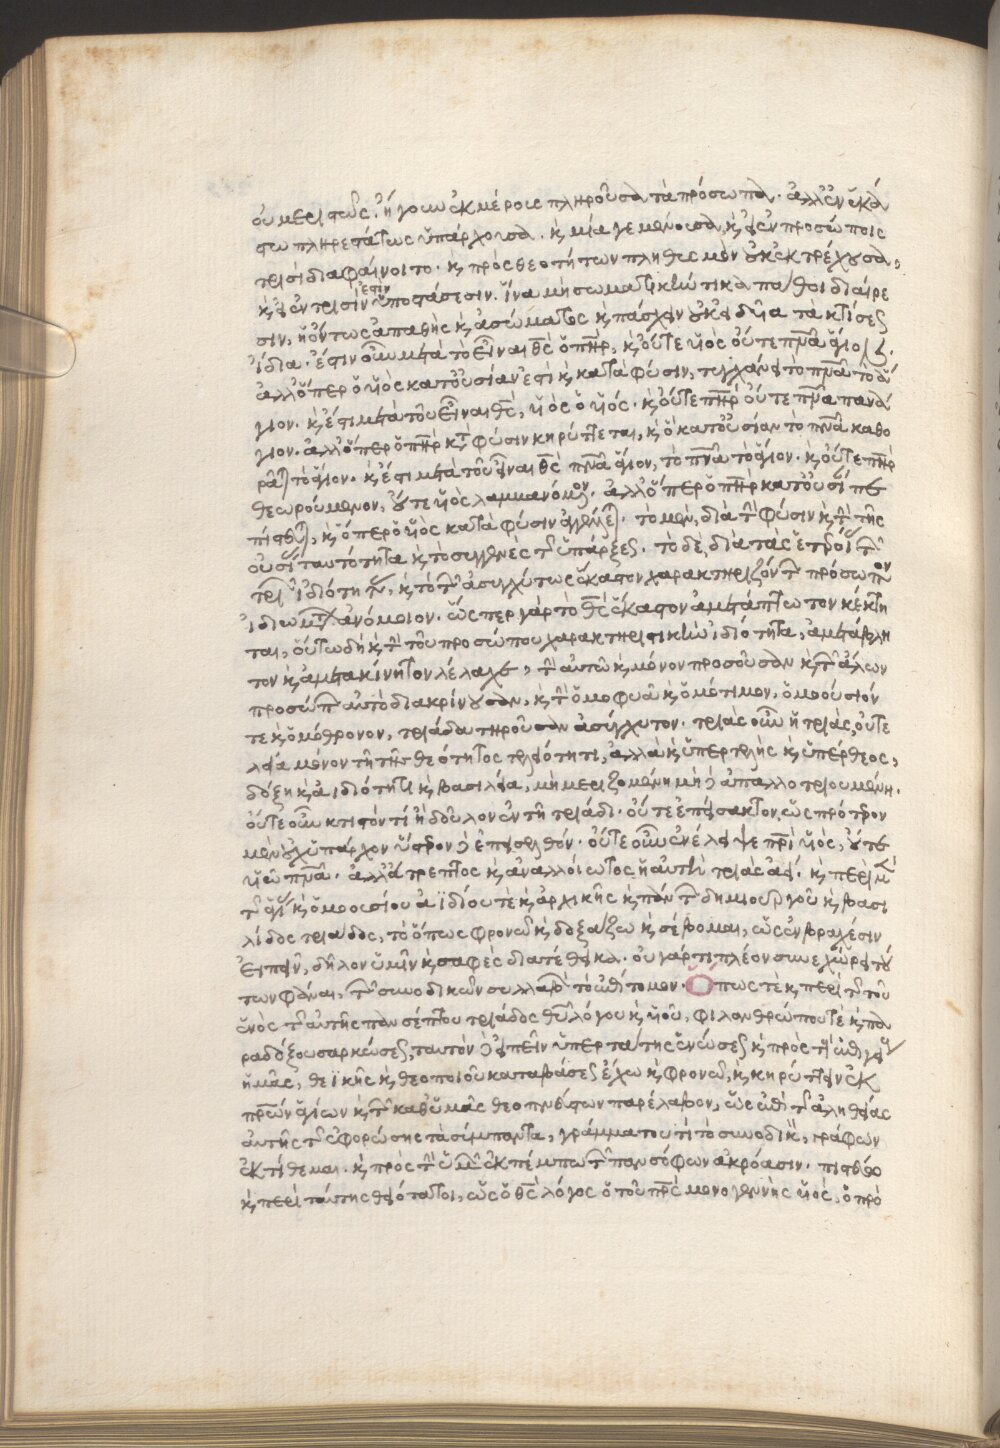 οὐ μεριστῶς. ἤγουν ἐκ μέρους πληροῦσα τὰ πρόσωπα. ἀλλ' ἐν ἑκά
στω πληρεστάτως ὑπάρχουσα. κ, μία γε μένουσα, κ, ἐν προσώποις
τρισὶ διαφαίνοιτο. κ, πρὸς θεοτήτων πλῆθος μὲν οὐκ ἐκτρέχουσα,
κ, ἐν τρισὶν ἔστιν ὑποστάσεσιν. ἵνα μὴ σωματικὴν τινὰ πάθοι διαίρε
σιν, ἡ ὄντως ἀπαθὴς κ, ἀσώματος κ, πάσχειν οὐκ εἰδυῖα τὰ κτίσεως
ἴδια. ἔστιν οὖν μετὰ τὸ εἶναι θς ὁ πηρ, κ, οὔτε υἱὸς οὔτε πνα ἅγιον.
ἀλλ' ὅπερ ὁ υἱὸς κατ' οὐσίαν ἐστὶ κ, κατὰ φύσιν, τυγχάνει τὸ πνα τὸ ἅ
γιον. κ, ἔστι μετὰ τοῦ εἶναι θς, υἱὸς ὁ υἱός. κ, οὔτε πηρ οὔτε πνα πανά
γιον. ἀλλ' ὅπερ ὁ πηρ κτ φύσιν κηρύττεται, κ, ὃ κατ' οὐσίαν τὸ πνα καθο
ρᾶται τὸ ἅγιον. κ, ἔστι μετὰ τοῦ εἶναι θς πνα ἅγιον, τὸ πνα τὸ ἅγιον. κ, οὔτε πηρ
θεωρούμενον, οὔτε υἱὸς λαμμανόμενον. ἀλλ' ὅπερ ὁ πηρ κατ' οὐσίαν πε
πίστευται, κ, ὅπερ ὁ υἱὸς κατὰ φύσιν ἤγγελται. τὸ μὲν, διὰ τὴν φύσιν κ, τὴν τῆς
οὐσίας ταυτότητα κ, τὸ συγγενὲς τῆς ὑπάρξεως. τὸ δὲ, διὰ τὰς ἑτεροίους τῶν
τριῶν ἰδιότητας, κ, τὸ τῶν ἀσυγχύτως ἕκαστον χαρακτηριζόντων πρόσωπον
ἰδιωμάτων ἀνόμοιον. ὥσπερ γὰρ τὸ θς ἕκαστον ἀμετάπτωτον κέκτη
ται, οὕτω δὴ κ, τὴν τοῦ προσώπου χαρακτηριστικὴν ἰδιότητα, ἀμετάβλη
τον κ, ἀμετακίνητον λέλαχε, τὴν αὐτῶ κ, μόνον προσοῦσαν κ, τῶν ἄλλων
προσώπων αὐτὸ διακρίνουσαν, κ, τὴν ὁμοφυᾶ κ, ὁμότιμον, ὁμοούσιόν
τε κ, ὁμόθρονον, τριάδα τηροῦσαν ἀσύγχυτον. τριὰς οὖν ἡ τριὰς, οὔτε
λεία μόνον τῆ τῆς θεότητος τελειότητι, ἀλλὰ κ, ὑπερτελὴς κ, ὑπέρθεος,
δόξη κ, ἀιδιότητι κ, βασιλεία, μὴ μεριζομένη μὴ δὲ ἀπαλλοτριουμένη.
οὔτε οὖν κτιστόν τι ἢ δοῦλον ἐν τῆ τριάδι. οὔτε ἐπείσακτον, ὡς πρότερον
μὲν οὐχ ὑπάρχον ὕστερον δὲ ἐπεισελθόν. οὔτε οὖν ἐνέλειψε πρὶ υἱὸς, οὔτε
υἱῶ πνα. ἀλλ' ἄτρεπτος κ, ἀναλλοίωτος ἡ αὐτὴ τριὰς ἀεί. κ, περὶ μὲν
τῆς ἁγίας κ, ὁμοουσίου ἀϊδίου τὲ κ, ἀρχικῆς κ, πάντων δημιουργοῦ κ, βασι
λίδος τριάδος, τὸ ὅπως φρονῶ κ, δοξάζω κ, σέβομαι, ὡς ἐν βραχέσιν
εἰπεῖν, δῆλον ὑμῖν κ, σαφὲς διατέθεικα. οὐ γάρ τι πλέον συνεχώρει τού
των φάναι, τῶν συνοδικῶν συλλαβῶν τὸ ἐπίτομον. Ὅπως τὲ κ, περὶ τῆς τοῦ
ἑνὸς τῆς αὐτῆς πανσέπτου τριάδος θεοῦ λόγου κ, υἱοῦ, φιλανθρώπου τὲ κ, πα
ραδόξου σαρκώσεως, ταυτὸν δὲ εἰπεῖν ὑπερτάτης ἑνώσεως κ, πρὸς τοὺς ἐπιγείους
ἡμᾶς, θεϊκῆς κ, θεοποιοῦ καταβάσεως ἔχω κ, φρονῶ, κ, κηρύττειν ἐκ
πρων ἁγίων κ, τῶν καθ' ὑμᾶς θεοπνεύστων παρέλαβον, ὡς ἐπὶ τῆς ἀληθείας
αὐτῆς τῆς ἐφορώσης τὰ σύμπαντα, γράμματου τί τὸ συνοδικὸν, γράφων
ἐκτίθεμαι. κ, πρὸς τὴν ὑμῶν ἐκπέμπω τῶν πανσόφων ἀκρόασιν. πιστεύω
κ, περὶ ταύτης θειότατοι, ὡς ὁ θς λόγος ὁ τοῦ πρς μονογενὴς υἱὸς, ὁ πρὸ